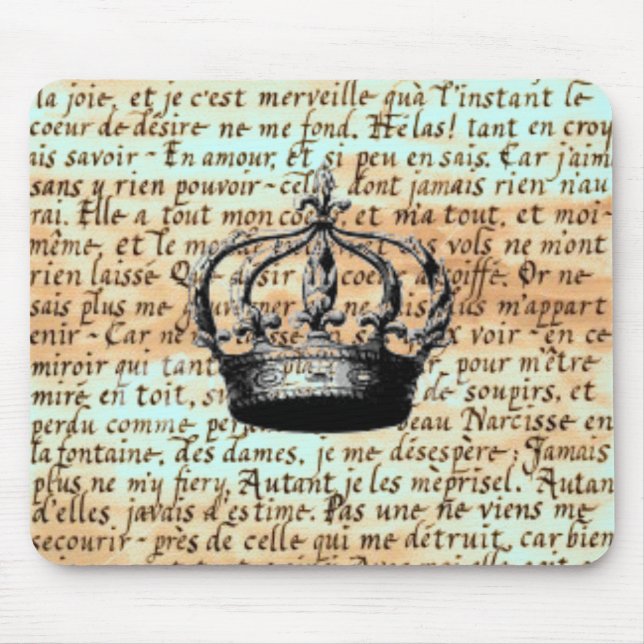 la joie, et je c'est merveille quà l'instant le
coeur de désire ne me fond. Hélas! tant en croy
ais savoir - En amour, et si peu en sais. Car j'aim
sans y rien pouvoir - cel dont jamais rien nau
rai. Elle a tout mon coeu, et m'a tout, et moi-
même, et le mo vols ne m'ont
rien laissé Que désir coeur a oiffé. Or ne
sais plus me gouverner ne m'appart
enir - Car ne laisse voir - en ce
miroir qui tant pla pour m'être
miré en toit, de soupirs, et
perdu comme per beau Narcisse en
la fontaine, des dames, je me désespère; Jamais
plus ne m'y fiery, Autant je les méprisel. Autan
d'elles javais d'estime. Pas une ne viens me
secourir - près de celle qui me détruit, car bien